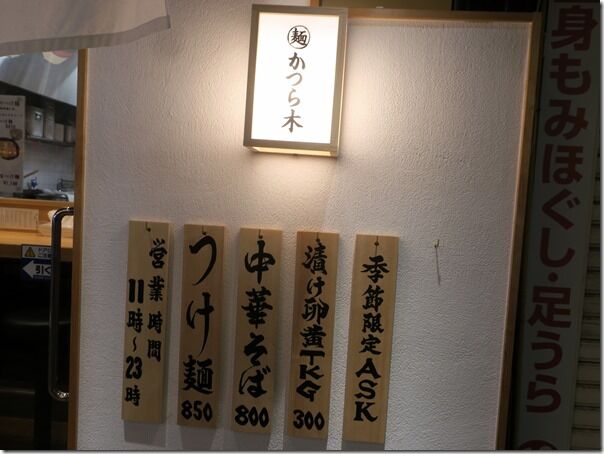 麺
かつら木
季節限定ASK
漬け卵黄TKG
300
中華そば
800
つけ麺
850
営業時間
11時~23時
引く
身もみほぐし・足うら